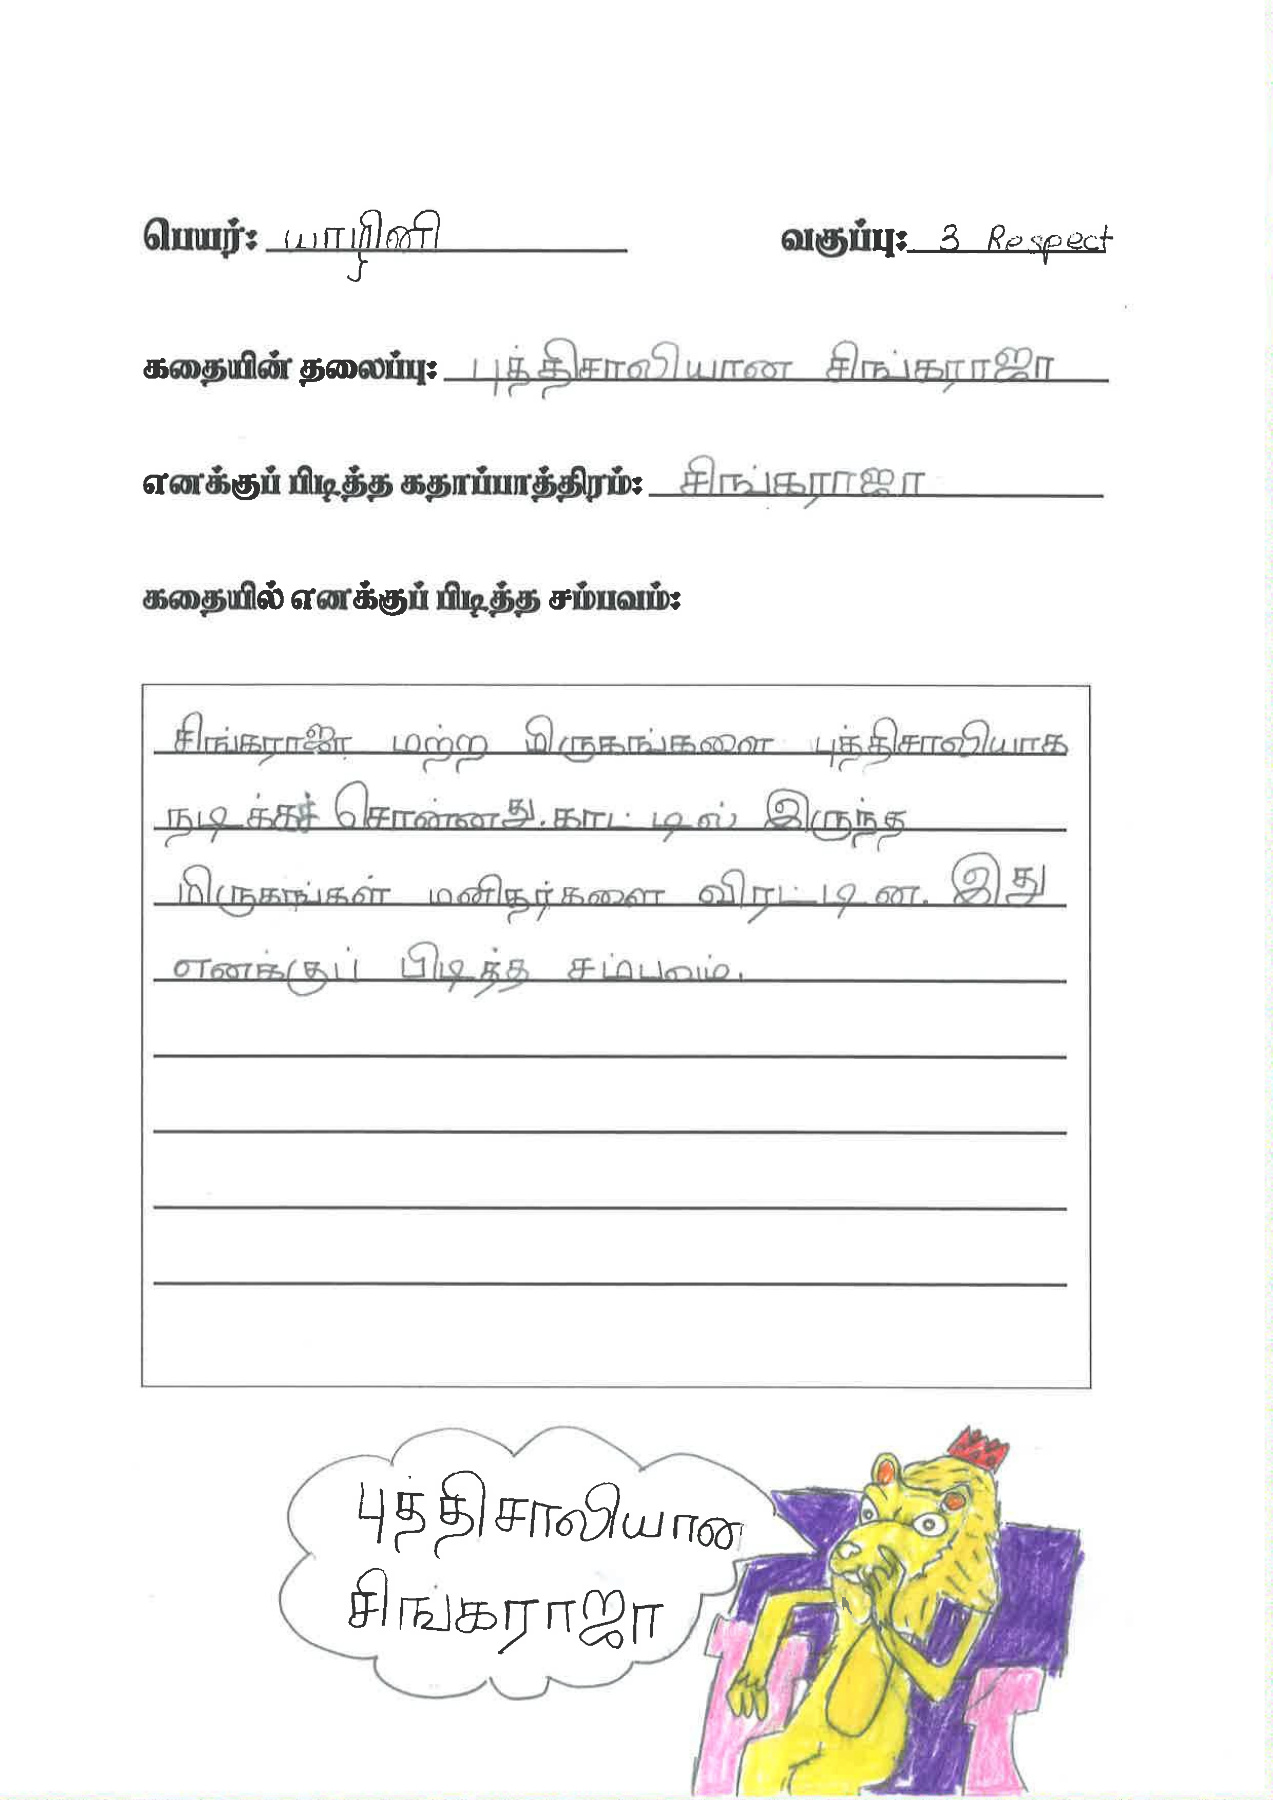 பெயர்: யாழினி வகுப்பு: 3 Respect
கதையின் தலைப்பு: புத்திசாலியான சிங்கராஜா
எனக்குப் பிடித்த கதாப்பாத்திரம்: சிங்கராஜா
கதையில் எனக்குப் பிடித்த சம்பவம்:
சிங்கராஜா மற்ற மிருகங்களை புத்திசாலியாக
நடிக்கச் சொன்னது. காட்டில் இருந்த
மிருகங்கள் மனிதர்களை விரட்டின. இது
எனக்குப் பிடித்த சம்பவம்.
புத்திசாலியான
சிங்கராஜா